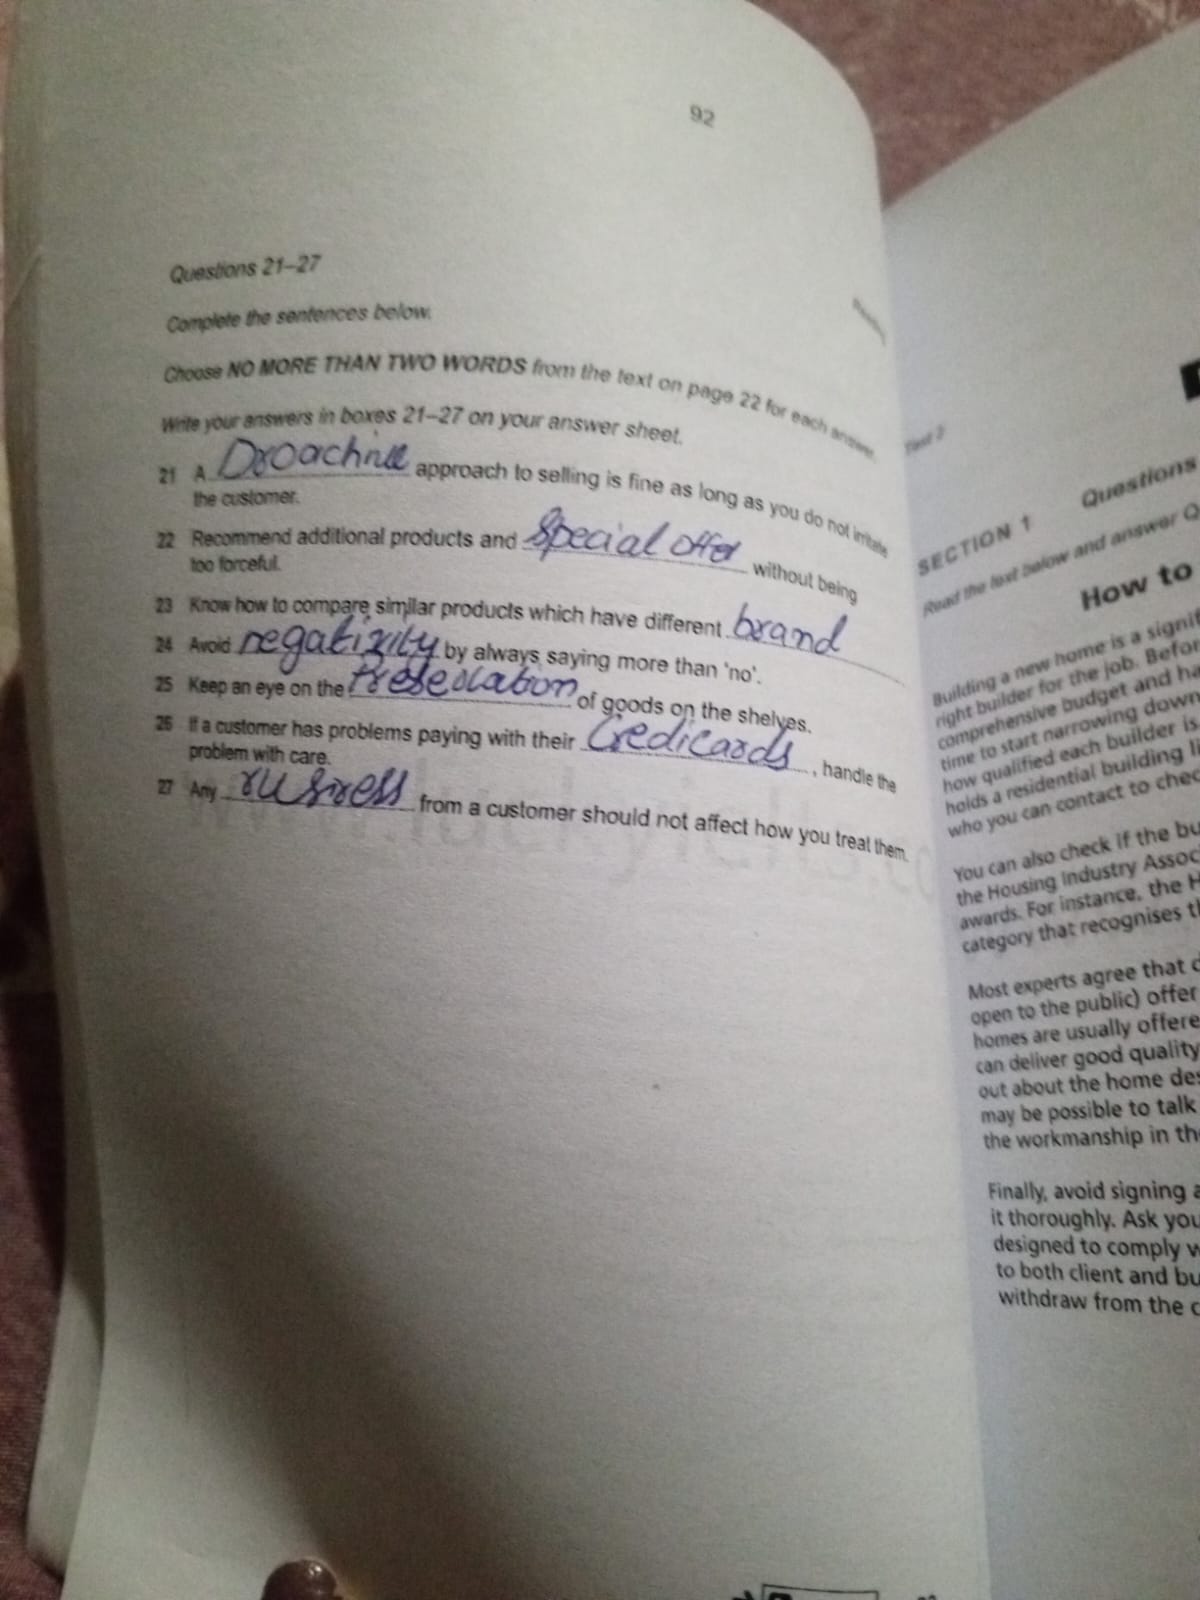 92
Questions 21–27
Complete the sentences below.
Choose NO MORE THAN TWO WORDS from the text on page 22 for each answer.
Write your answers in boxes 21–27 on your answer sheet.
21 A approach to selling is fine as long as you do not irritate
the customer.
22 Recommend additional products and special offer without being
too forceful.
23 Know how to compare similar products which have different brand
24 Avoid negativity by always saying more than 'no'.
25 Keep an eye on the of goods on the shelves.
26 If a customer has problems paying with their , handle the
problem with care.
27 Any from a customer should not affect how you treat them.
Test 2
SECTION 1 Questions
Read the text below and answer Q
How to
Building a new home is a signif
right builder for the job. Befor
comprehensive budget and ha
time to start narrowing down
how qualified each builder is
holds a residential building li
who you can contact to chec
You can also check if the bu
the Housing Industry Assoc
awards. For instance, the H
category that recognises th
Most experts agree that d
open to the public) offer
homes are usually offere
can deliver good quality
out about the home des
may be possible to talk
the workmanship in the
Finally, avoid signing a
it thoroughly. Ask you
designed to comply w
to both client and bu
withdraw from the c